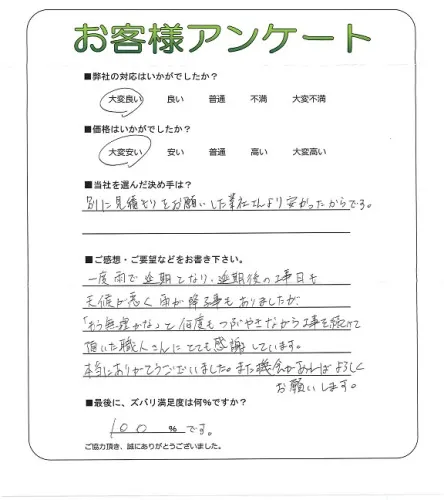 お客様アンケート
■弊社の対応はいかがでしたか?
大変良い 良い 普通 不満 大変不満
■価格はいかがでしたか?
大変安い 安い 普通 高い 大変高い
■当社を選んだ決め手は?
別に見積もりをお願いした業社さんより安かったからです。
■ご感想・ご要望などをお書き下さい。
一度雨で延期となり、延期後の工事日も
天候が悪く雨が降る事もありましたが、
「もう無理かな」と何度もつぶやきながら工事を続けて
頂いた職人さんにとても感謝しています。
本当にありがとうございました。また機会があればよろしく
お願いします。
■最後に、ズバリ満足度は何%ですか?
100 %です。
ご協力頂き、誠にありがとうございました。